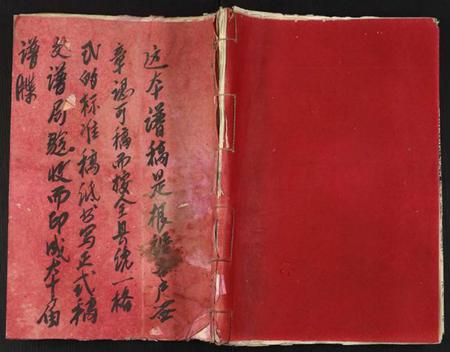 这本谱稿是根据各户盖
章认可稿而按全县统一格
式的标准稿纸书写正式稿
交谱局验收而印成本届
谱牒